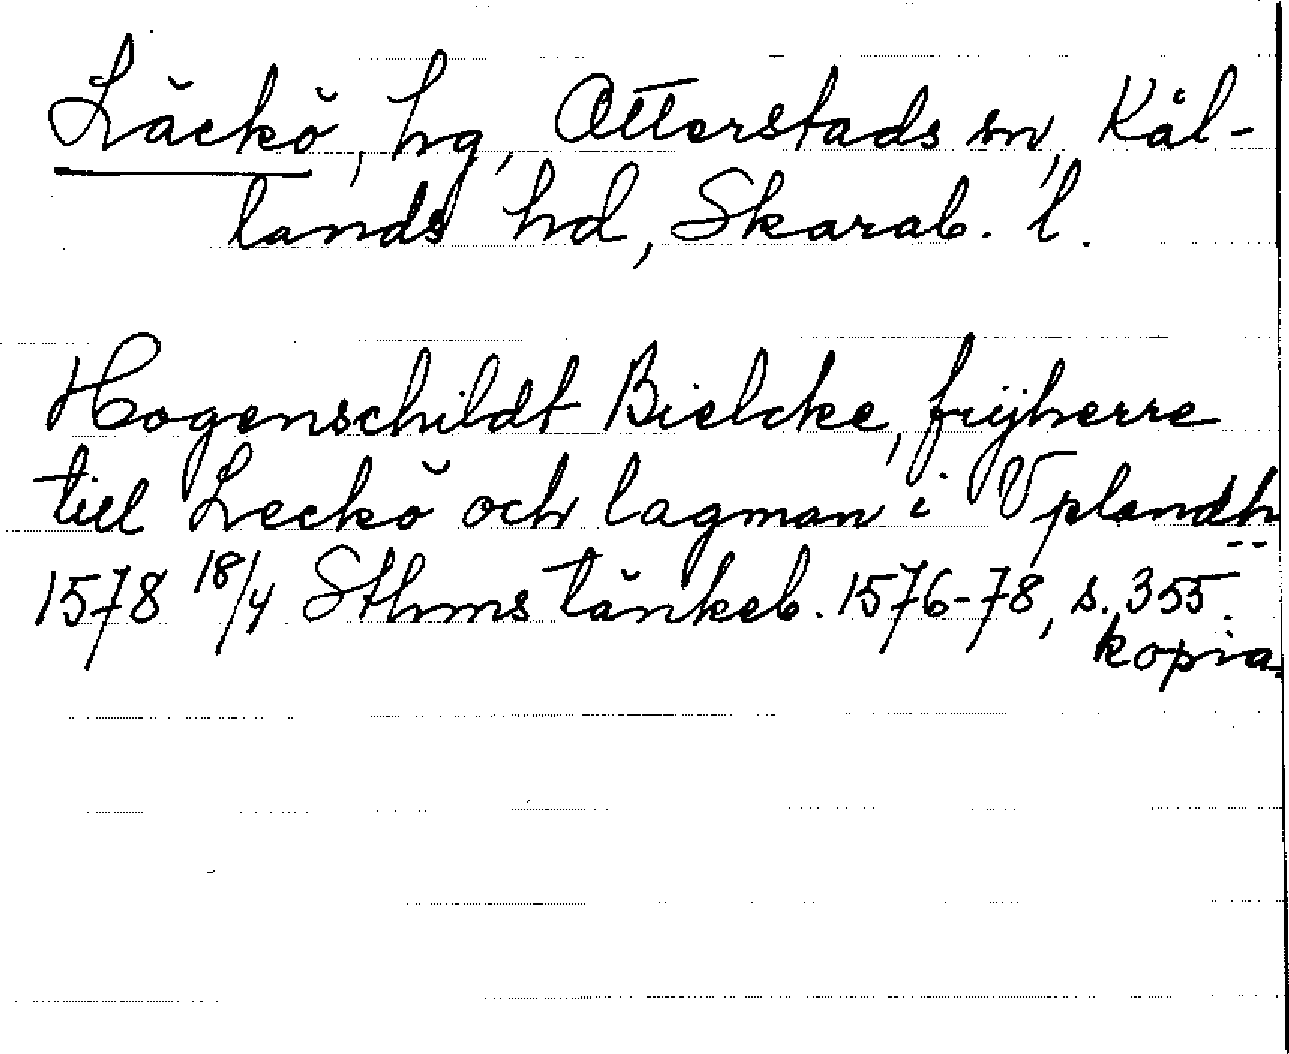 Läckö, hg, Otterstads sn, Kål-
lands hd, Skarab. l.
Hogenschildt Bielcke, frijherre
till Leckö och lagman i Vplandh
1578 18/4 Sthms tänkeb. 1576-78, s. 355.
kopia.